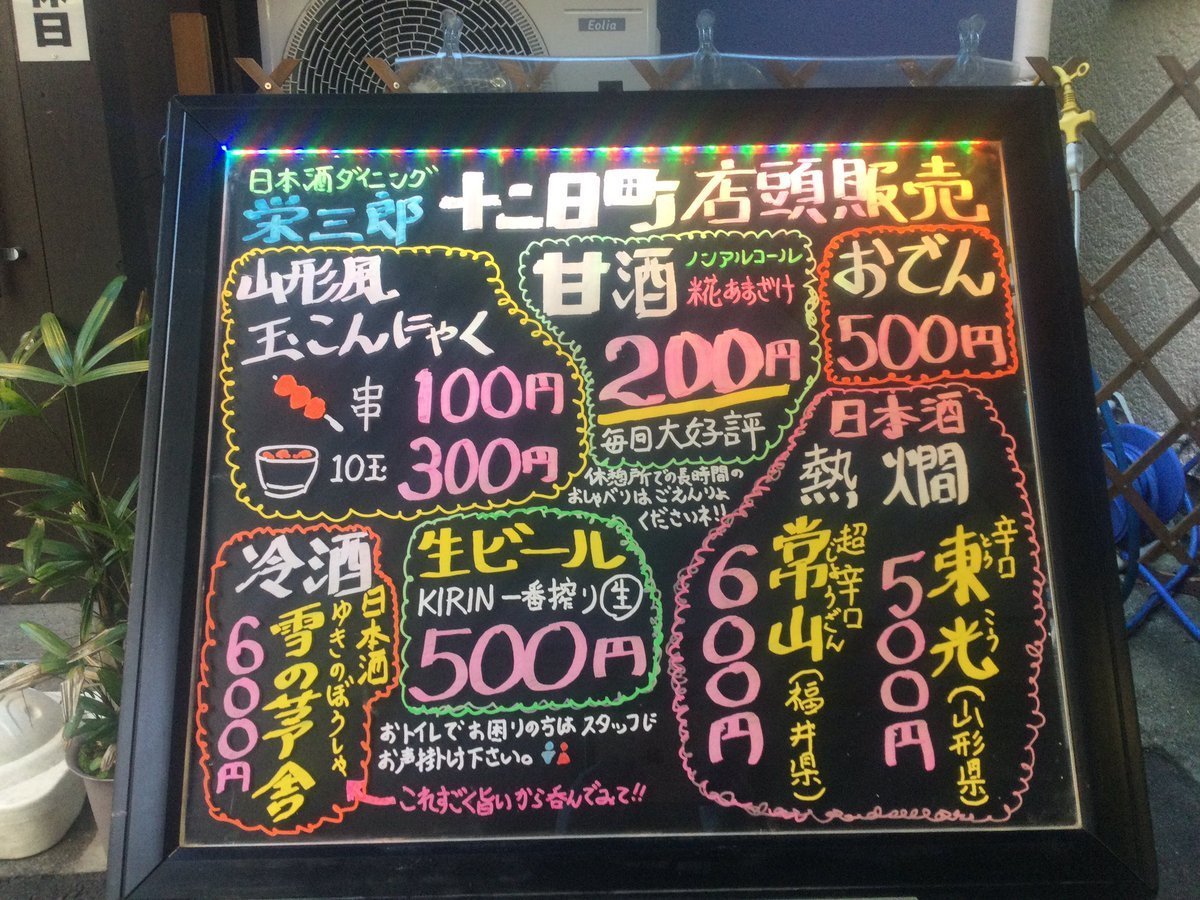 休日
Eolia
日本酒ダイニング
栄三郎
十二日町
店頭販売
山形風
玉こんにゃく
串 100円
10玉 300円
甘酒
ノンアルコール
糀あまざけ
200円
毎回大好評
休憩所での長時間の
おしゃべりは、ごえんりょ
くださいネ!!
おでん
500円
日本酒
熱燗
辛口
東光
とうこう
(山形県)
500円
超辛口
常山
じょうざん
(福井県)
600円
生ビール
KIRIN 一番搾り 生
500円
冷酒
日本酒
ゆきのぼうしゃ
雪の茅舎
600円
おトイレでお困りの方は スタッフに
お声掛け下さい。
これすごく旨いから呑んでみて!!